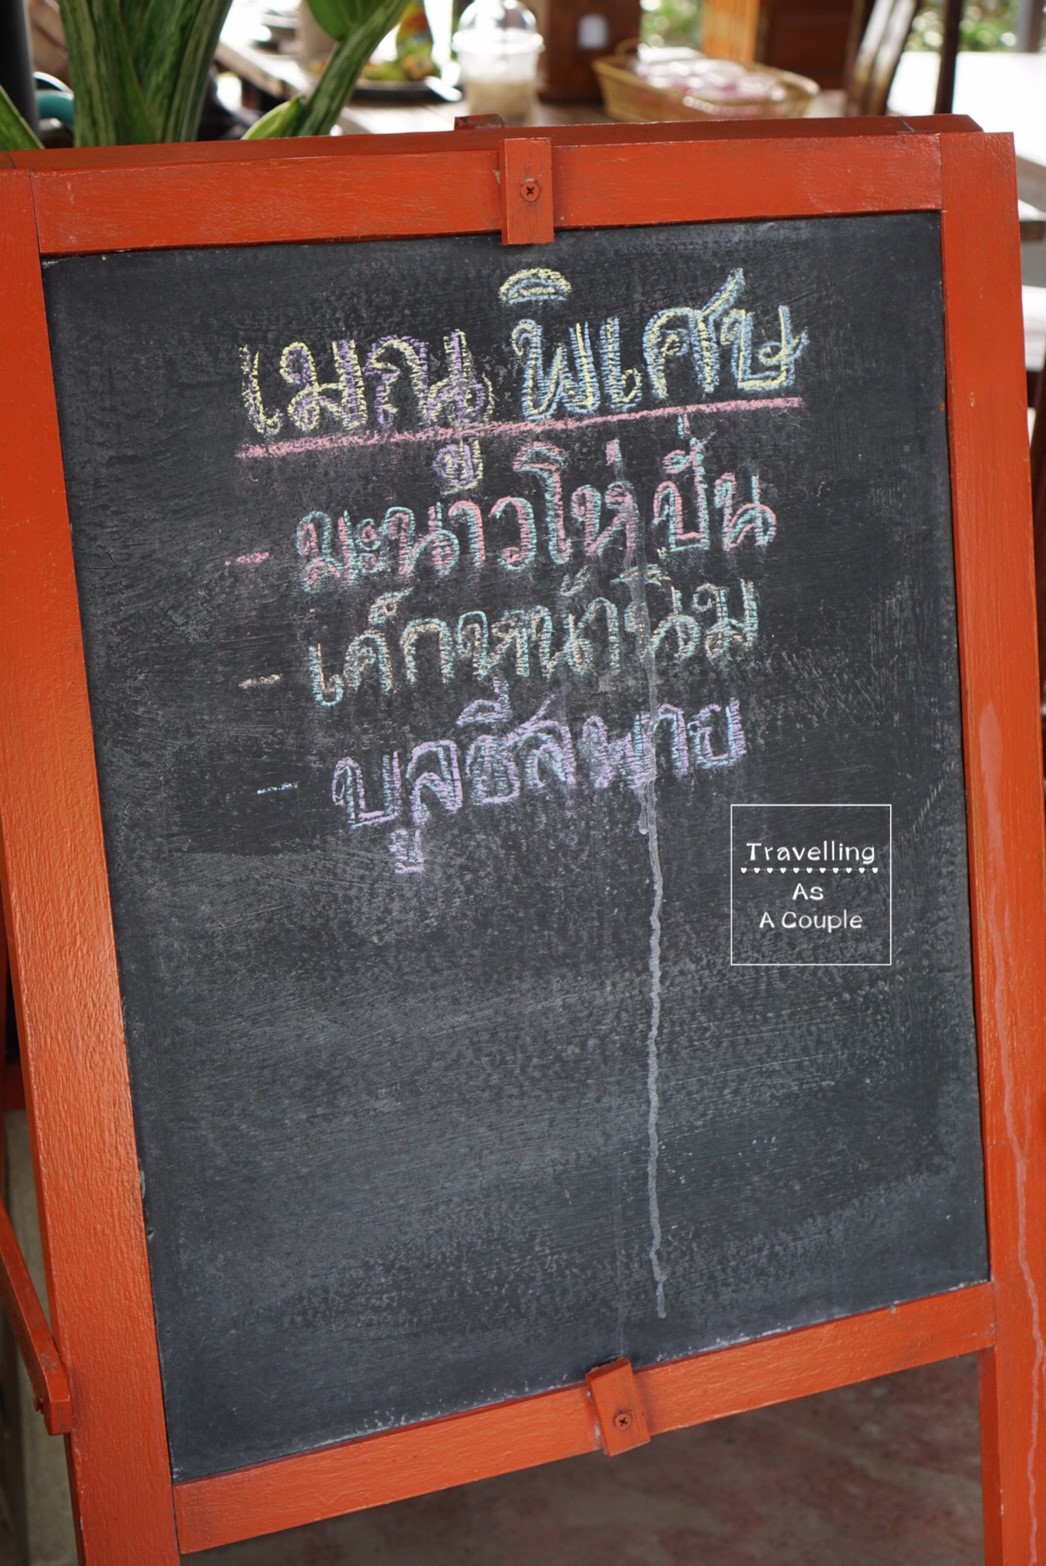 เมนู พิเศษ
- มะนาวโห่ ปั่น
- เค้กหน้านิ่ม
- บลูชีสพาย
Travelling
As
A Couple